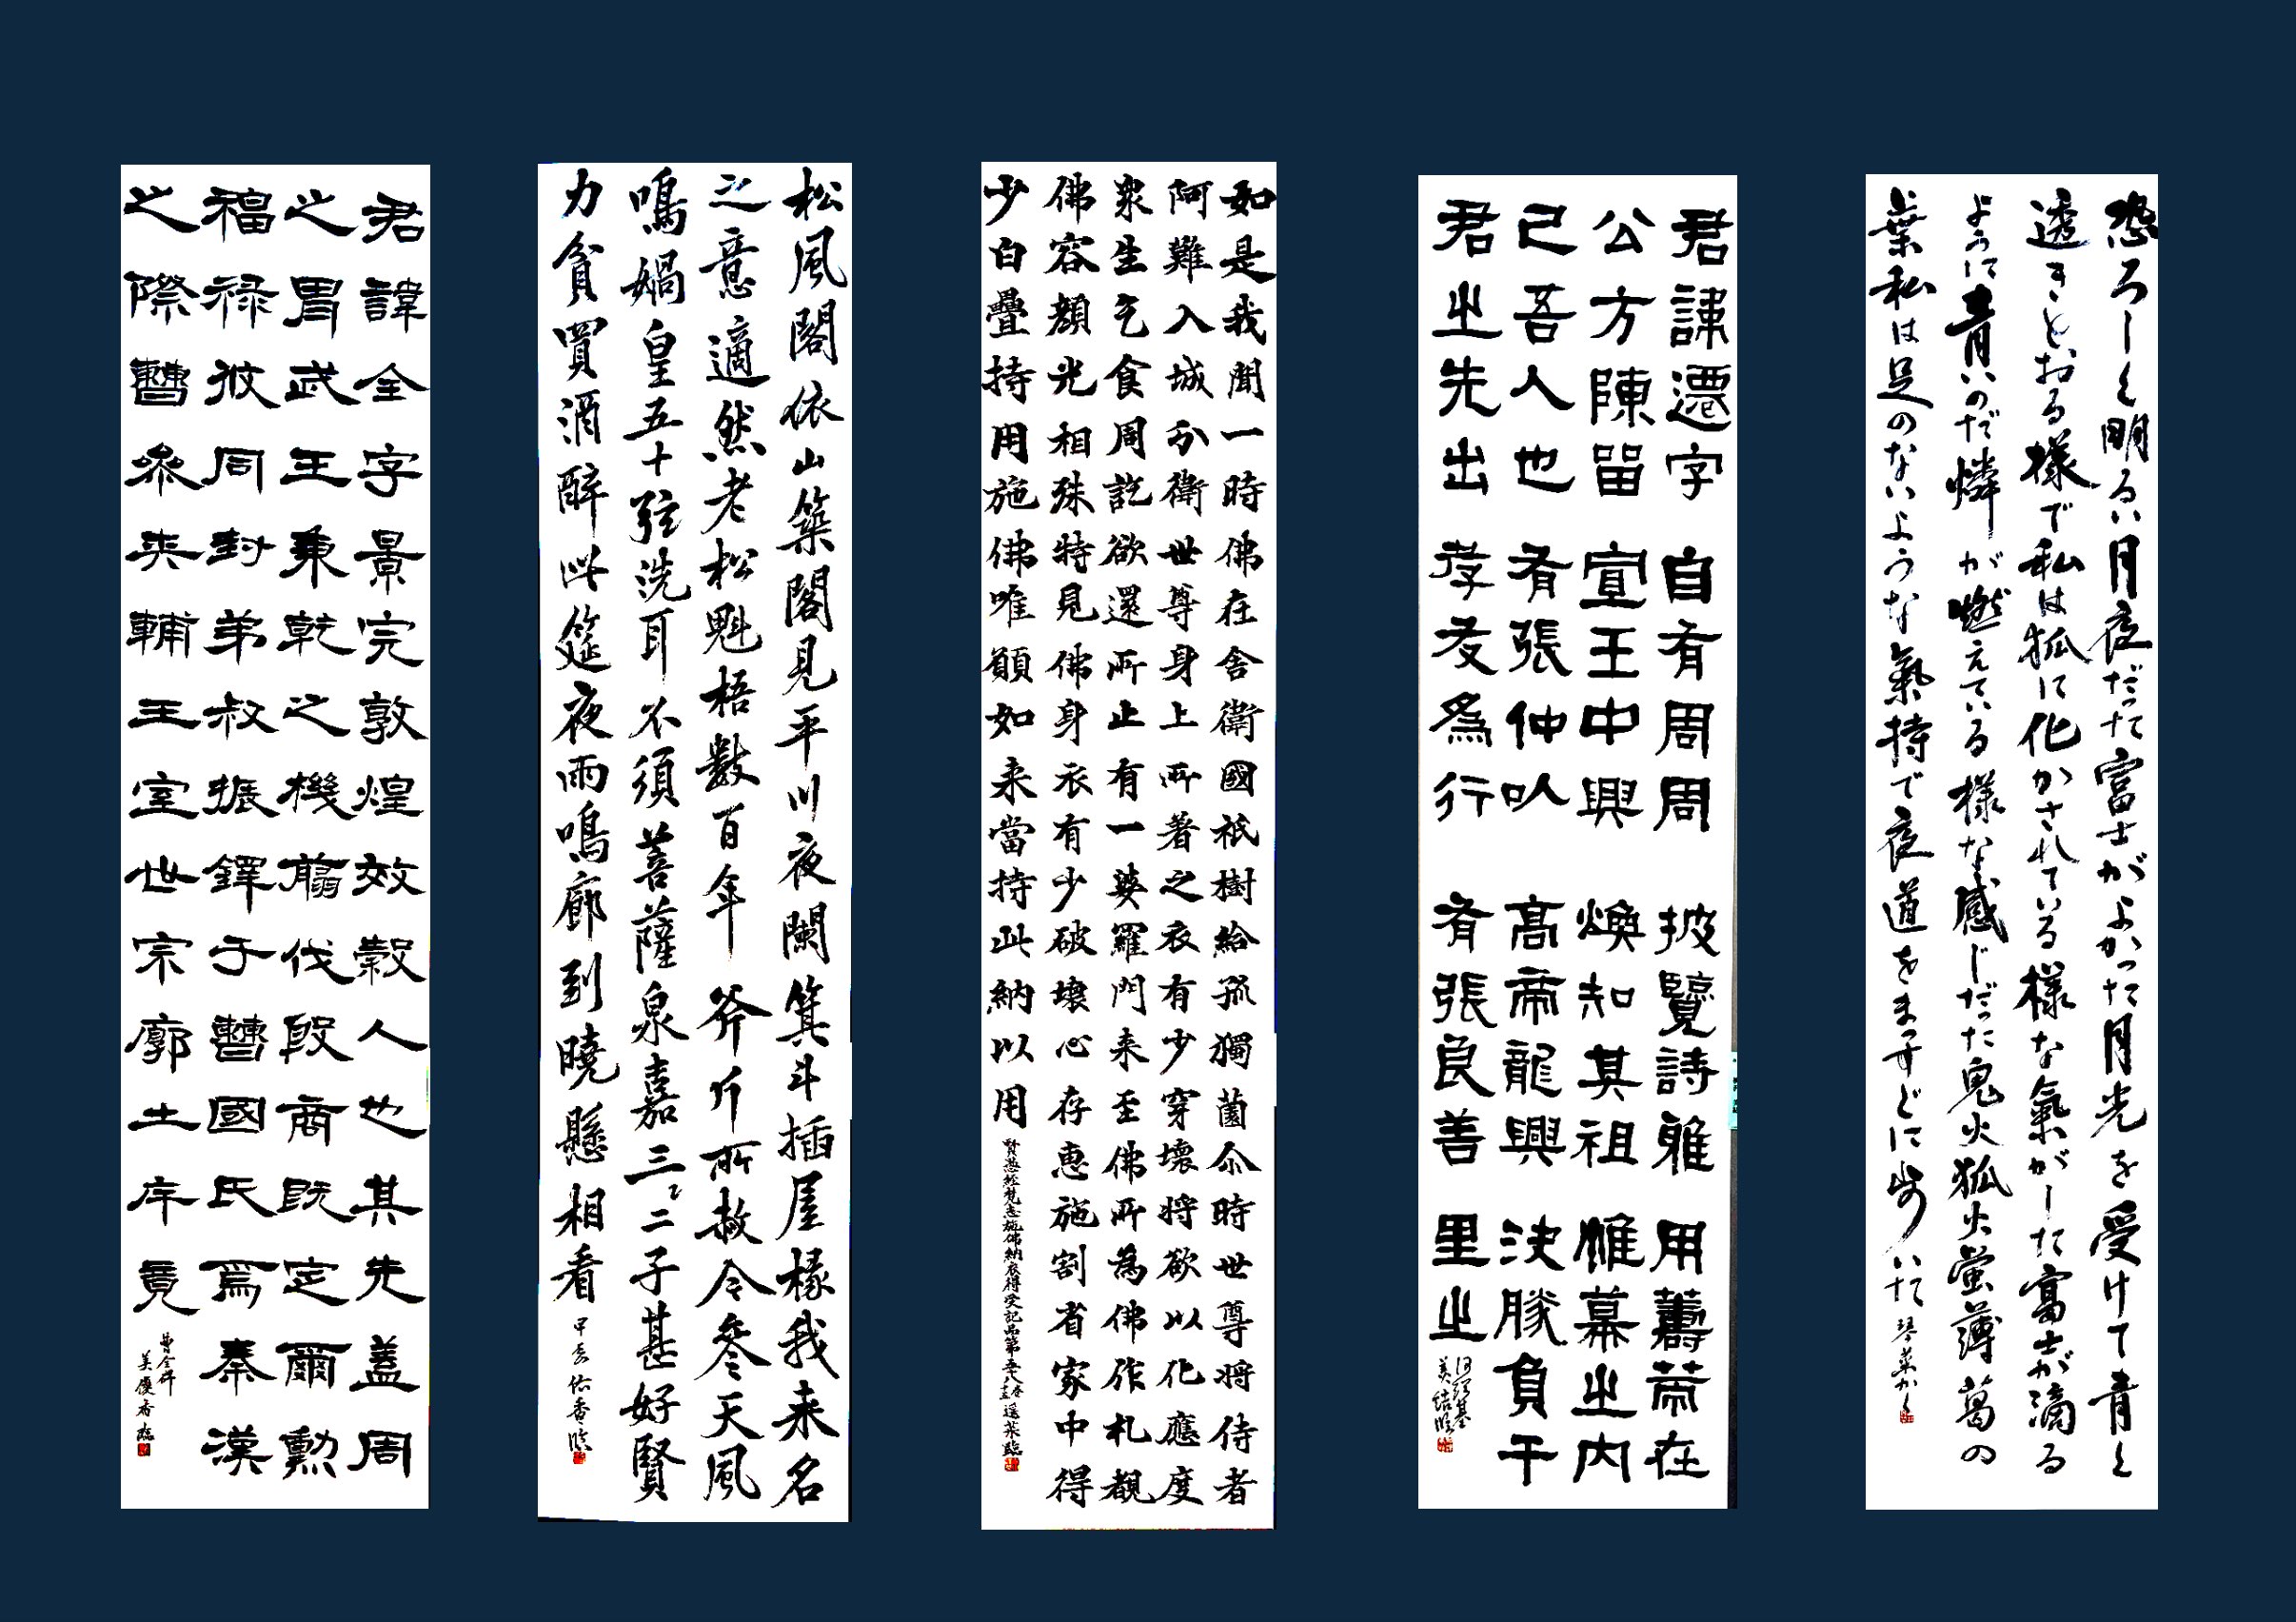 恐ろしく明るい月夜だった富士がよかった月光を受けて青く
透きとおる様で私は狐に化かされている様な氣がした富士が滴る
ように青いのだ燐が燃えている様な感じだった鬼火狐火螢薄葛の
葉私は足のないような氣持で夜道をまっすぐに歩いた
琴葉かく
君諱遷字 自有周周 披覽詩雅 用籌帝在
公方陳留 宣王中興 煥知其祖 帷幕之内
己吾人也 有張仲以 高帝龍興 決勝負千
君之先出 孝友為行 有張良善 里之
如是我聞一時佛在舍衛國祇樹給孤獨薗尒時世尊將侍者
阿難入城分衛世尊身上所著之衣有少穿壞將欲以化應度
衆生乞食周訖欲還所止有一婆羅門来至佛所為佛作礼覩
佛容顏光相殊特見佛身衣有少破壞心存惠施割省家中得
少白疊持用施佛唯願如来當持此納以用
松風閣依山築閣見平川夜闌箕斗插屋椽我来名
之意適然老松魁梧數百年斧斤所赦令參天風
鳴媧皇五十弦洗耳不須菩薩泉嘉三〻二子甚好賢
力貧買酒醉此筵夜雨鳴廊到曉懸相看
君諱全字景完敦煌效穀人也其先蓋周
之胄武王秉乾之機翦伐殷商既定爾勳
福祿攸同封弟叔振鐸于曹國氏焉秦漢
之際曹參夾輔王室世宗廓土斥竟
曹全碑